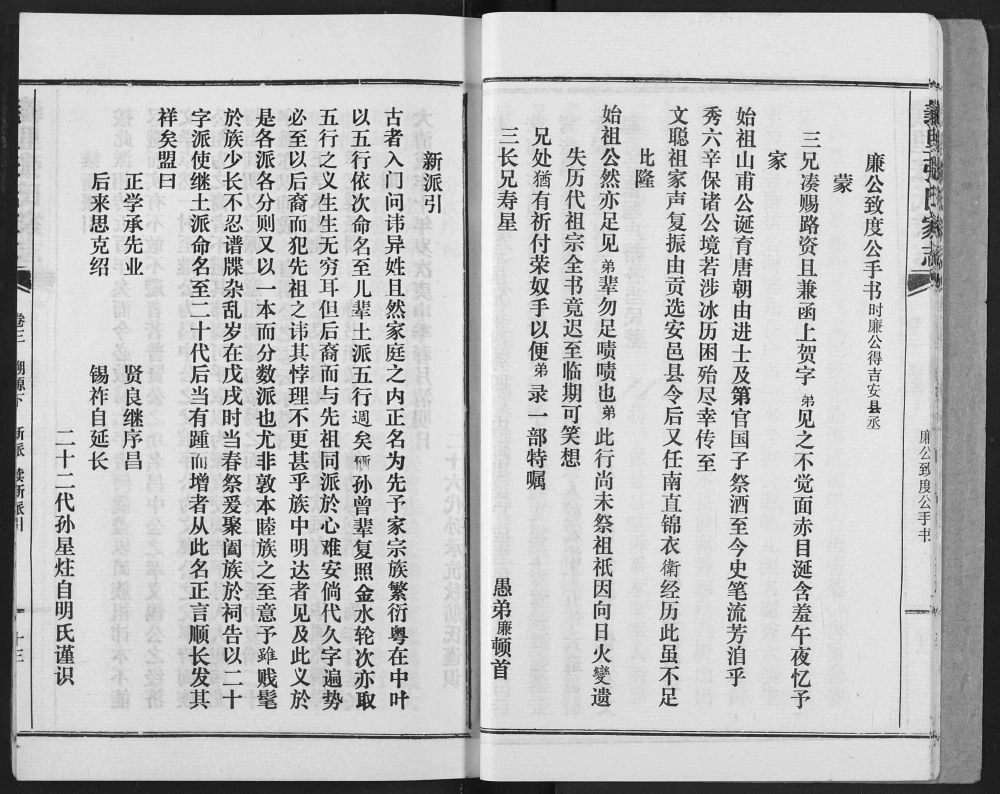 廉公致度公手书 时廉公得吉安县丞
蒙
三兄凑赐路资且兼函上贺字弟见之不觉面赤目涎含羞午夜忆予
家
始祖山甫公诞育唐朝由进士及第官国子祭酒至今史笔流芳洎乎
秀六辛保诸公境若涉冰历困殆尽幸传至
文聪祖家声复振由贡选安邑县令后又任南直锦衣衛经历此虽不足
比隆
始祖公然亦足见弟辈勿足啧啧也弟此行尚未祭祖祇因向日火變遗
失历代祖宗全书竟迟至临期可笑想
兄处猶有祈付荣奴手以便弟录一部特嘱
三长兄寿星
愚弟廉顿首
廉公致度公手书
新派引
古者入门问讳异姓且然家庭之内正名为先予家宗族繁衍粤在中叶
以五行依次命名至儿辈土派五行週矣俩孙曾辈复照金水轮次亦取
五行之义生生无穷耳但后裔而与先祖同派於心难安倘代久字遍势
必至以后裔而犯先祖之讳其悖理不更甚乎族中明达者见及此义於
是各派各分则又以一本而分数派也尤非敦本睦族之至意予雖贱髦
於族少长不忍谱牒杂乱岁在戊戌时当春祭爰聚阖族於祠告以二十
字派使继土派命名至二十代后当有踵而增者从此名正言顺长发其
祥矣盟曰
正学承先业 贤良继序昌
后来思克绍 锡祚自延长
二十二代孙星炷自明氏谨识
卷三 溯源下 新派 续新派引
十三